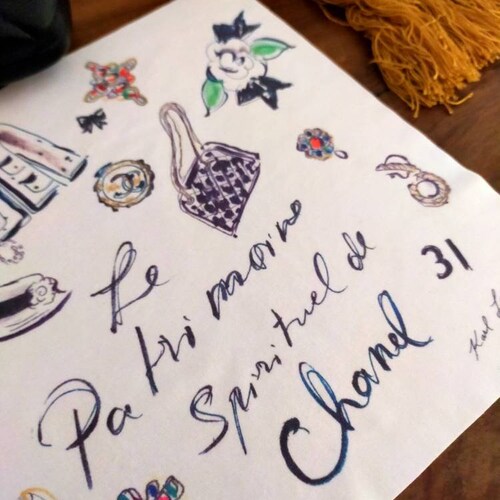 Le
Patrimoine
Spirituel de
Chanel
31
Karl